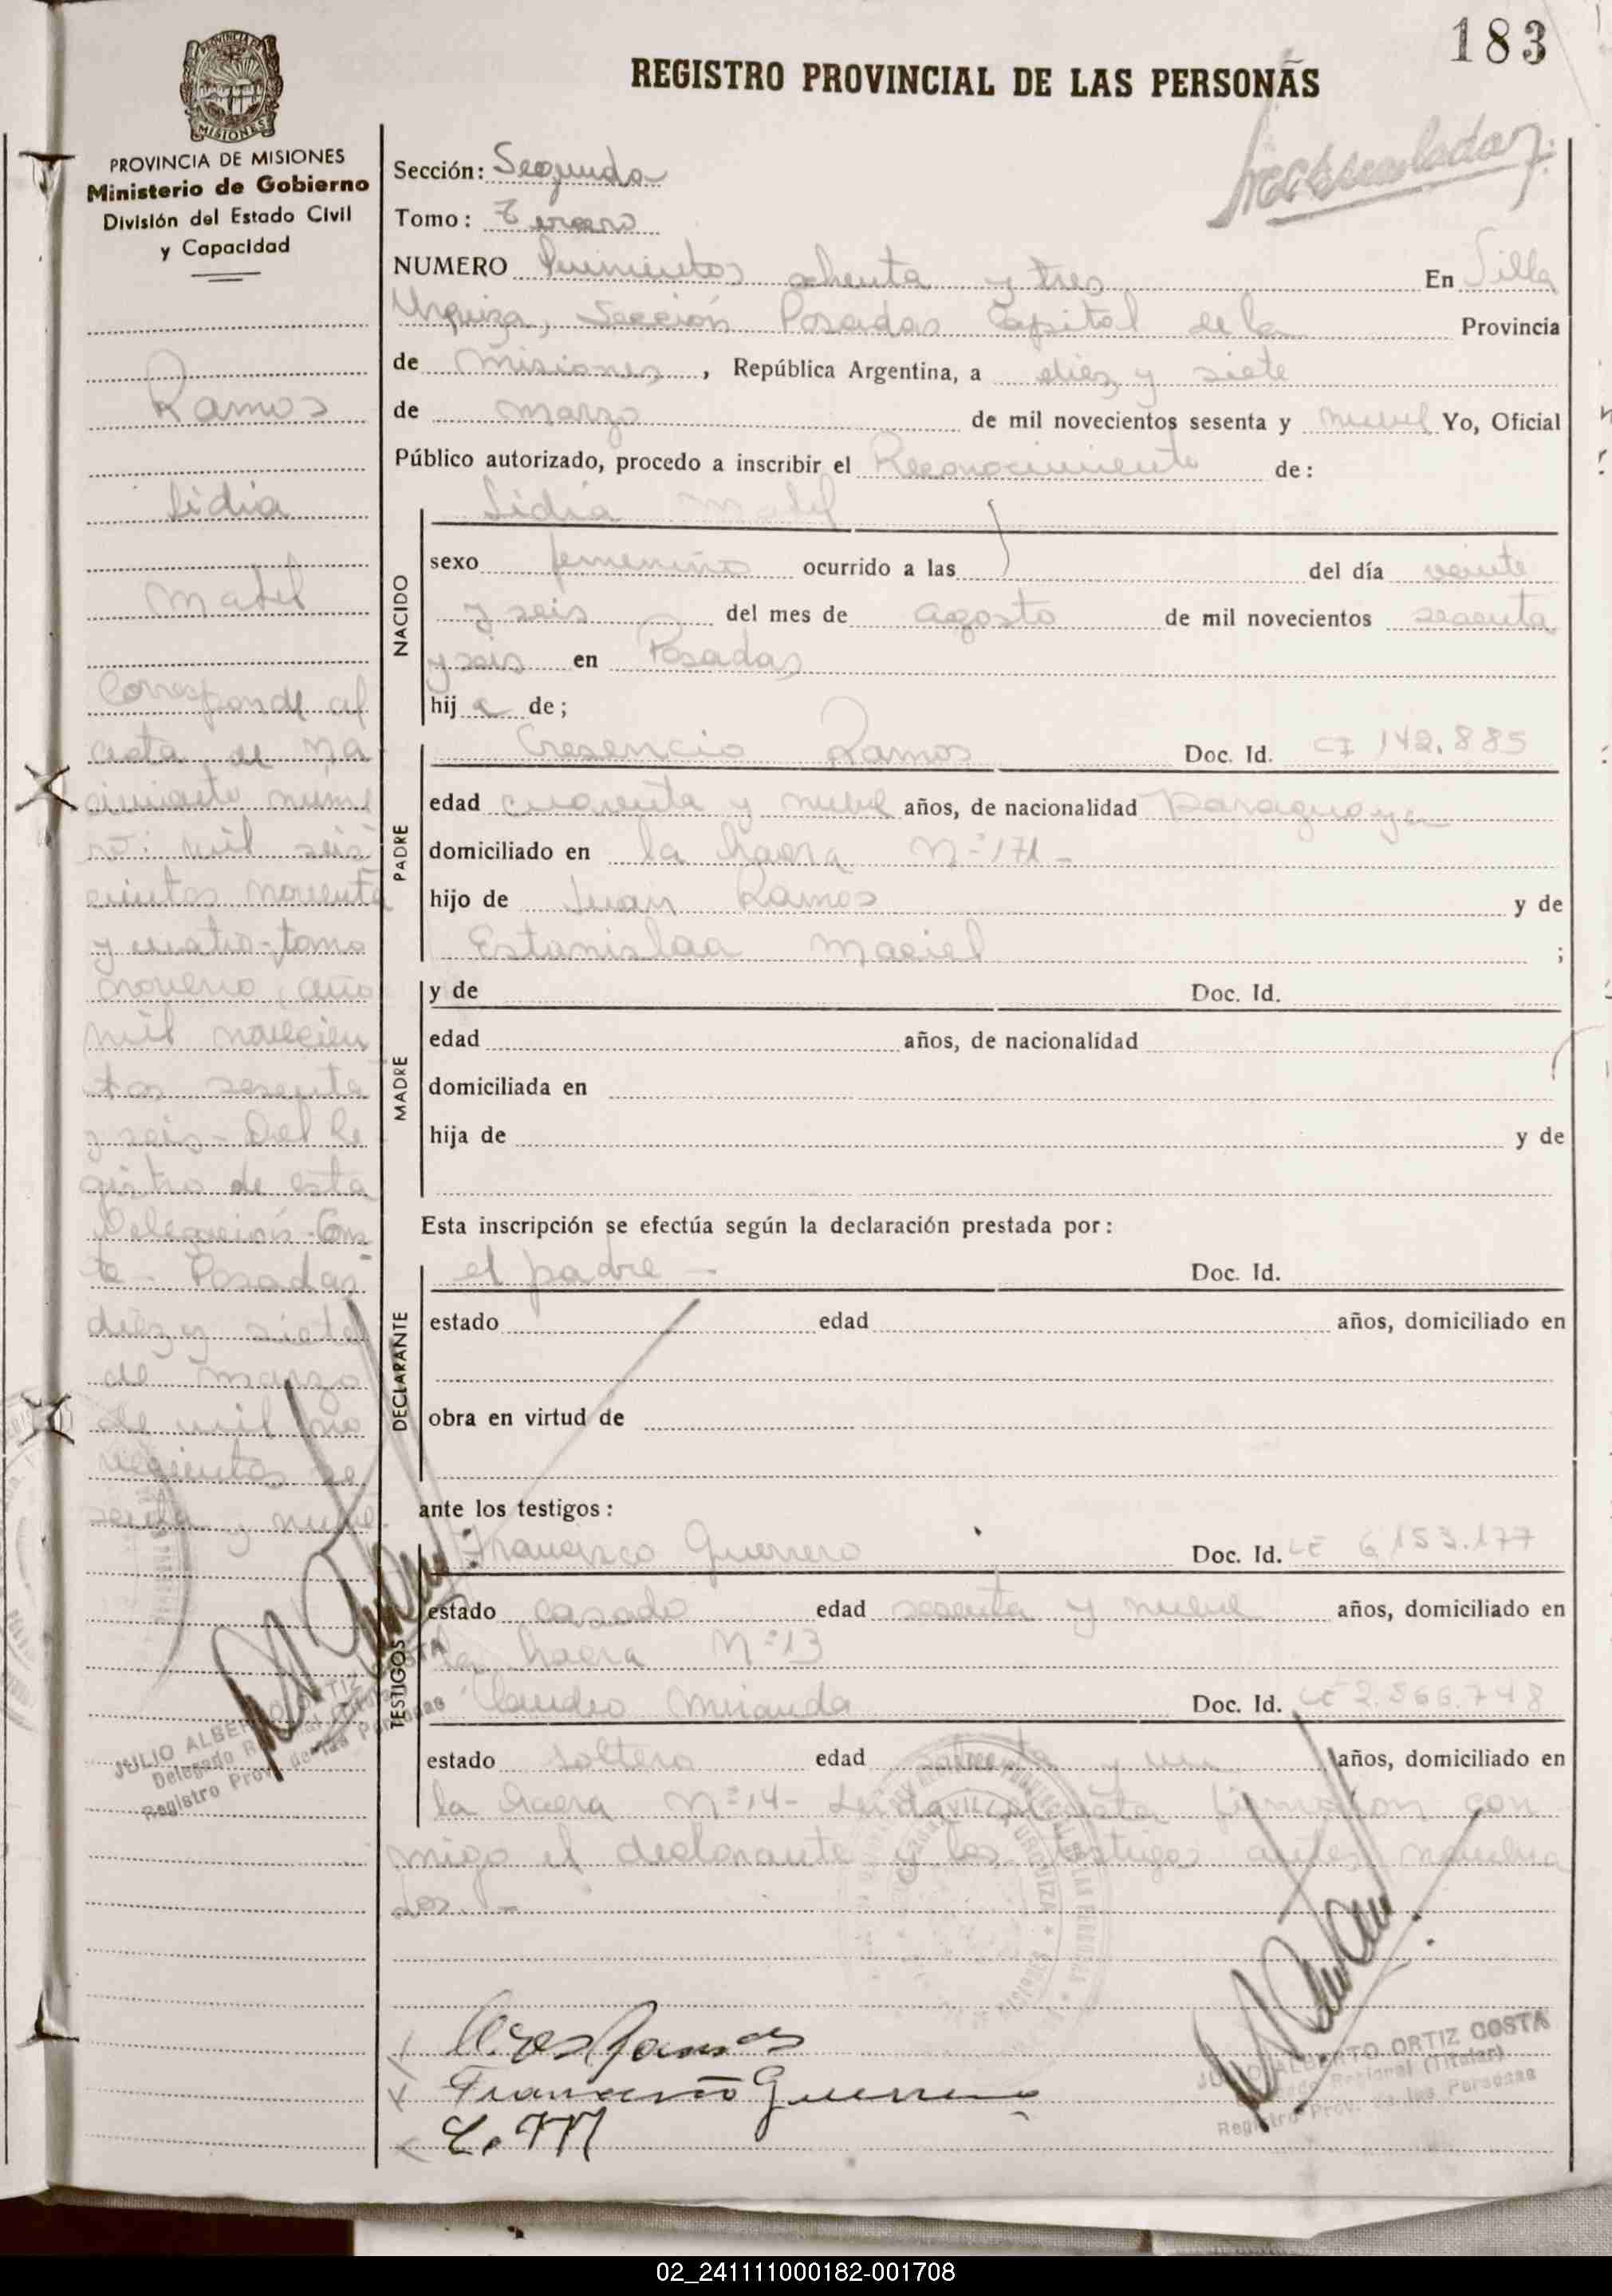 183
REGISTRO PROVINCIAL DE LAS PERSONAS
PROVINCIA DE MISIONES
Ministerio de Gobierno
División del Estado Civil
y Capacidad
Ramos
Lidia
Mabel
Corresponde al
acta de na
cimiento nume
ro: mil seis
cientos noventa
y cuatro-tomo
noveno, año
mil novecien
tos sesenta
y seis - Del Re
gistro de esta
Delegación. Cons
te - Posadas
diez y siete
de marzo
de mil no
vecientos se
senta y nueve
JULIO ALBERTO ORTIZ COSTA
Delegado Regional (Titular)
Registro Prov. de las Personas
Sección: Segunda
Tomo: Tercero
NUMERO Quinientos ochenta y tres En Villa
Urquiza, Sección Posadas Capital de la Provincia
de Misiones, República Argentina, a diez y siete
de marzo de mil novecientos sesenta y nueve Yo, Oficial
Público autorizado, procedo a inscribir el Reconocimiento de:
NACIDO
Lidia Mabel
sexo femenino ocurrido a las del día veinte
y seis del mes de agosto de mil novecientos sesenta
y seis en Posadas
hij a de;
PADRE
Cresencio Ramos Doc. Id. CI 142.885
edad cuarenta y nueve años, de nacionalidad paraguaya
domiciliado en la hacra N° 171 -
hijo de Juan Ramos y de
Estanislaa Maciel ;
MADRE
y de Doc. Id.
edad años, de nacionalidad
domiciliada en
hija de y de
Esta inscripción se efectúa según la declaración prestada por:
DECLARANTE
el padre - Doc. Id.
estado edad años, domiciliado en
obra en virtud de
ante los testigos:
TESTIGOS
Francisco Guerrero Doc. Id. LE 6.153.177
estado casado edad sesenta y nueve años, domiciliado en
la hacra N° 13
Claudio Miranda Doc. Id. LE 2.566.748
estado soltero edad y un años, domiciliado en
la hacra N° 14 - Leida acta firmaron con
migo el declarante y los testigos antes nombra
dos. -
Cres Ramos
Francisco Guerrero
C. M
JULIO ALBERTO ORTIZ COSTA
Delegado Regional (Titular)
Registro Prov. de las Personas
02_241111000182-001708